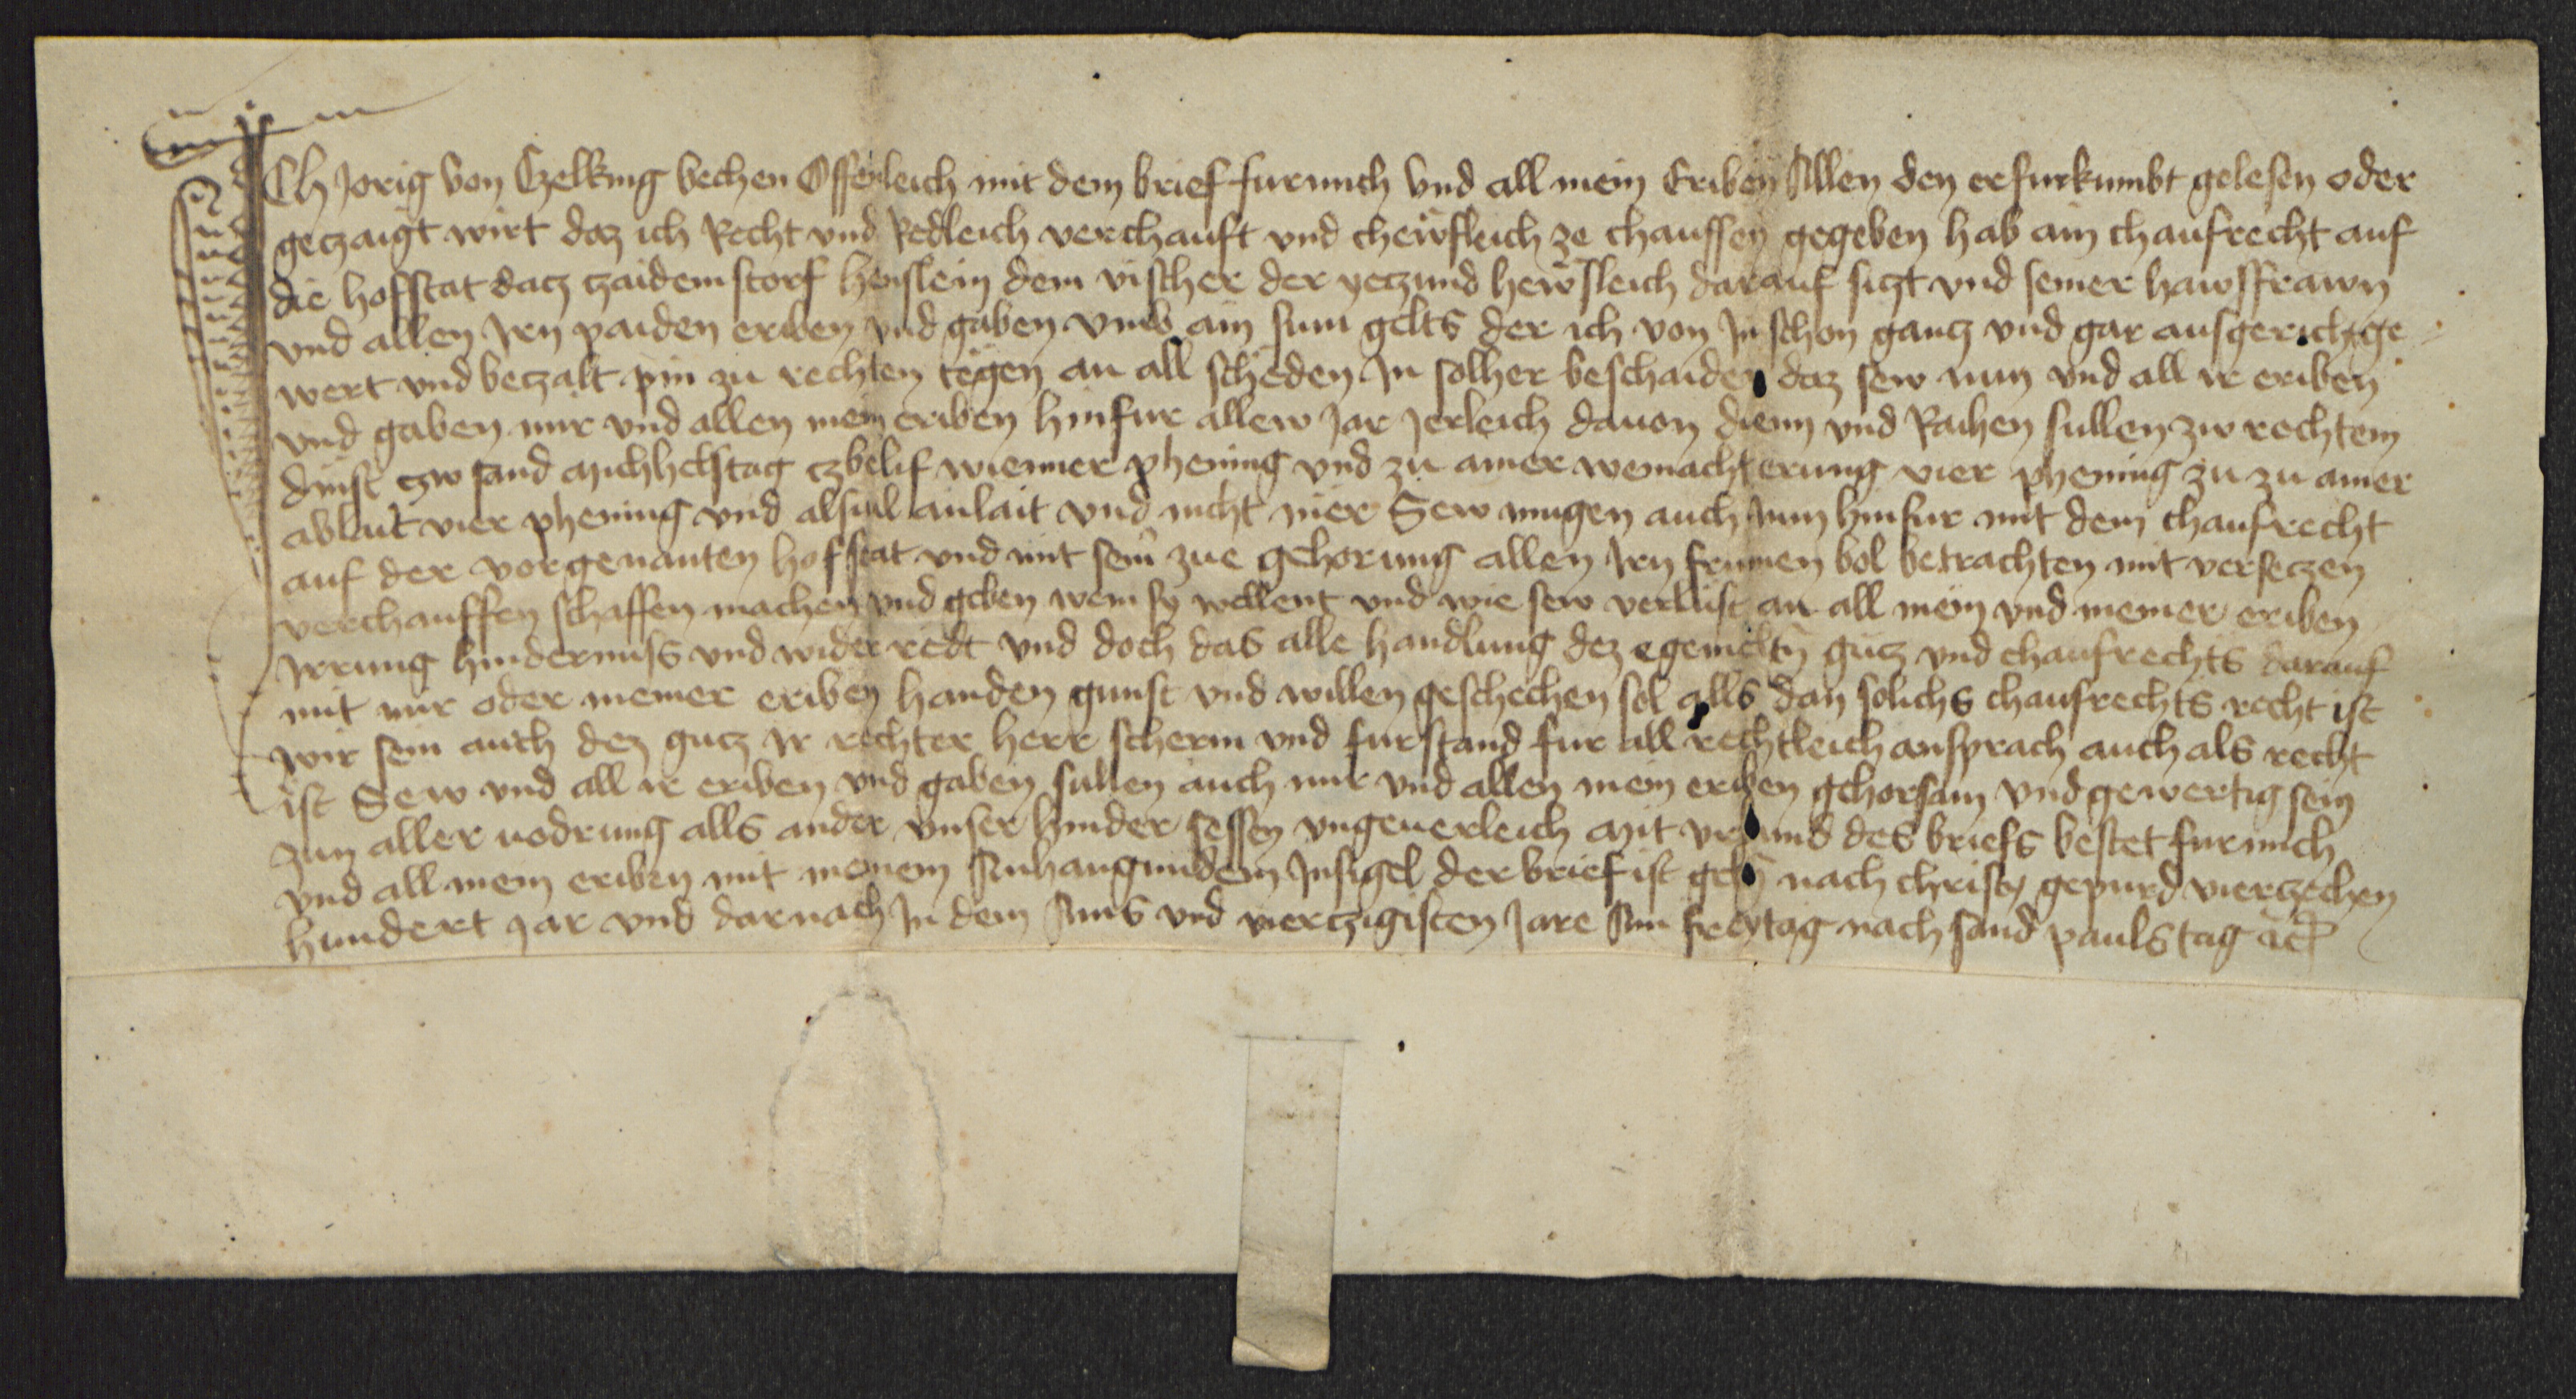 ICh Jorig von Czelking vechen Offenleich mit dem brief fur mich vnd all mein Eriben Allen den er furkumbt gelesen oder
geczaigt wirt daz ich Recht vnd Redleich verchauft vnd chewfleich ze chauffen gegeben hab ain chaufrecht auf
die hofstat datz czaidemstorf henslein dem vischer der yeczund hewsleich darauf siczt vnd seiner hawsfrawn
vnd allen Jrn paiden eriben vnd gaben vmb ain sum gelts der ich von Jn schon gancz vnd gar ausgericht ge
wert vnd beczalt pin zu rechten tëgen an all schëden Jn solher beschaiden daz sew nun vnd all ir eriben
vnd gaben mir vnd allen mein eriben hinfur allew Jar Jerleich dauon dienn vnd Raihen sullen zw rechtem
dinst czw sand Michhelstag czbelif wienner phening vnd zu ainer weinacht erung vier phening zu zu ainer
ablait vier phening vnd alsuil anlait vnd nicht mer Sew mugen auch nun hinfur mit dem chaufrecht
auf der vorgenanten hofstat vnd mit sein zue gehorung allen Jrn frumen bol betrachten mit verseczen
verchauffen schaffen machen vnd geben wem sy wellent vnd wie sew verlust an all mein vnd meiner eriben
Jrrung hindernuss vnd wider redt vnd doch das alle handlung dez egemeltn gucz vnd chaufrechts darauf
mit mir oder meiner eriben handen gunst vnd willen geschechen sol alls dan solichs chaufrechts recht ist
wir sein auch dez gucz Jr rechter herr scherm vnd furstand fur all rechtleich ansprach auch als recht
ist Sew vnd all ir eriben vnd gaben sullen auch mir vnd allen mein eriben gehorsam vnd gewertig sein
zun aller uodrung alls ander vnser hinder sessen vngeuerleich Mit vrkund des briefs bestet fur mich
vnd all mein eriben mit meinem Anhangundem Insigel der brief ist gebn nach christi gepurd vierczechen
hundert Jar vnd darnach Jn dem Ains vnd vierczigisten Jare Am freytag nach sand pauls tag